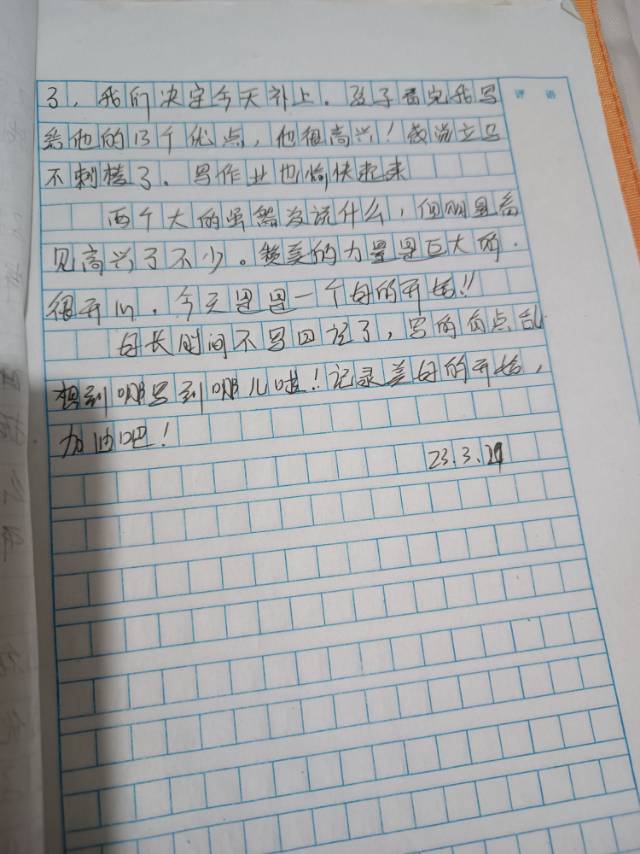 评语
了，我们决定今天补上．孩子看完我写
给他的13个优点，他很高兴！我说立马
不刺挠了．写作业也愉快起来
两个大的虽然没说什么，但明显看
见高兴了不少。赞美的力量是巨大的．
很开心．今天是一个好的开始!!
好长时间不写日记了，写的有点乱
想到哪写到哪儿啦！记录美好的开始，
加油吧！
23.3.29